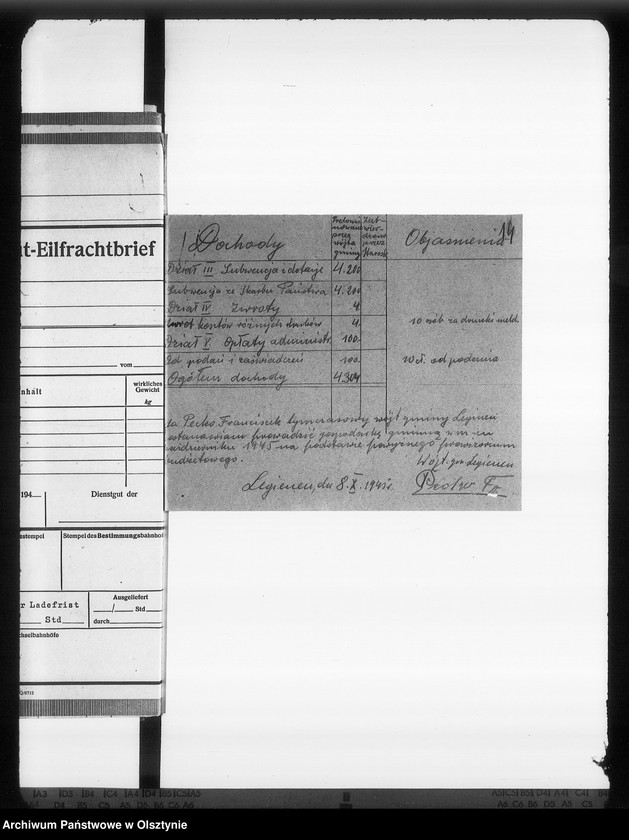 t-Eilfrachtbrief
vom
nhalt
wirkliches
Gewicht
kg
194
Dienstgut der
sstempel
Stempel des Bestimmungsbahnhof
r Ladefrist
Std
Ausgeliefert
/ Std
durch
chselbahnhöfe
14
Dochody
przez
wójta
gminy
Zat-
wier-
dzone
przez
Objasnienia
Dział III Subwencja i dotacje 4.200
Subwencja ze Skarbu Państwa 4.200
Dział IV Zwroty 4.
zwrot kosztów różnych druków 4. 10 osób za druki meld.
Dział V Opłaty administr. 100.
Od podań i zaświadczeń 100. W zł. od podania
Ogółem dochody 4.304
Ja Pećko Franciszek tymczasowy wójt gminy Legienen
prowadzić gospodarkę gminną w m-cu
październiku 1945 na podstawie powyższego prowizorium
budżetowego.
Wójt gm Legienen
Legienen, dn 8.X.1945r.
A3 D3 B4 C4 A4 D4 B5 C5 A5
Archiwum Państwowe w Olsztynie